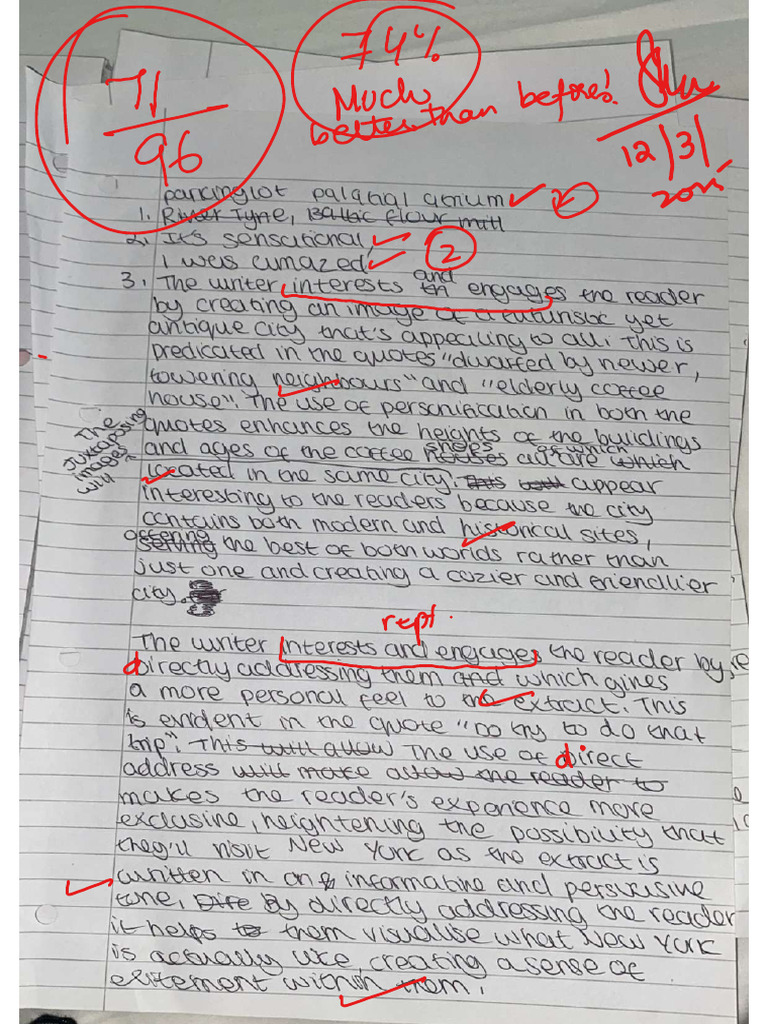 71
96
74%
Much
better than before!
12/3/
parkinglot palatial atrium 2
1. River Tyne, Baltic flour mill
2. It's sensational, 2
I was amazed.
and
3. The writer interests th engages the reader
by creating an image of a futuristic yet
antique city that's appealing to all. This is
predicated in the quotes "dwarfed by newer,
towering neighbours" and "elderly coffee
house". The use of personification in both the
quotes enhances the heights of the buildings
shops of which
and ages of the coffee houses all are which
The juxtaposing images will
located in the same city. This both appear
interesting to the readers because the city
contains both modern and historical sites,
offering
serving the best of both worlds rather than
just one and creating a cozier and friendlier
city.
rept.
The writer interests and engages the reader by
directly addressing them and which gives
a more personal feel to the extract. This
is evident in the quote "Do try to do that
trip". This will allow The use of direct
address will make allow the reader to
makes the reader's experience more
exclusive, heightening the possibility that
they'll visit New York as the extract is
written in an informative and persuasive
tone. By directly addressing the reader
it helps to them visualise what New York
is actually like, creating a sense of
exitement within them.